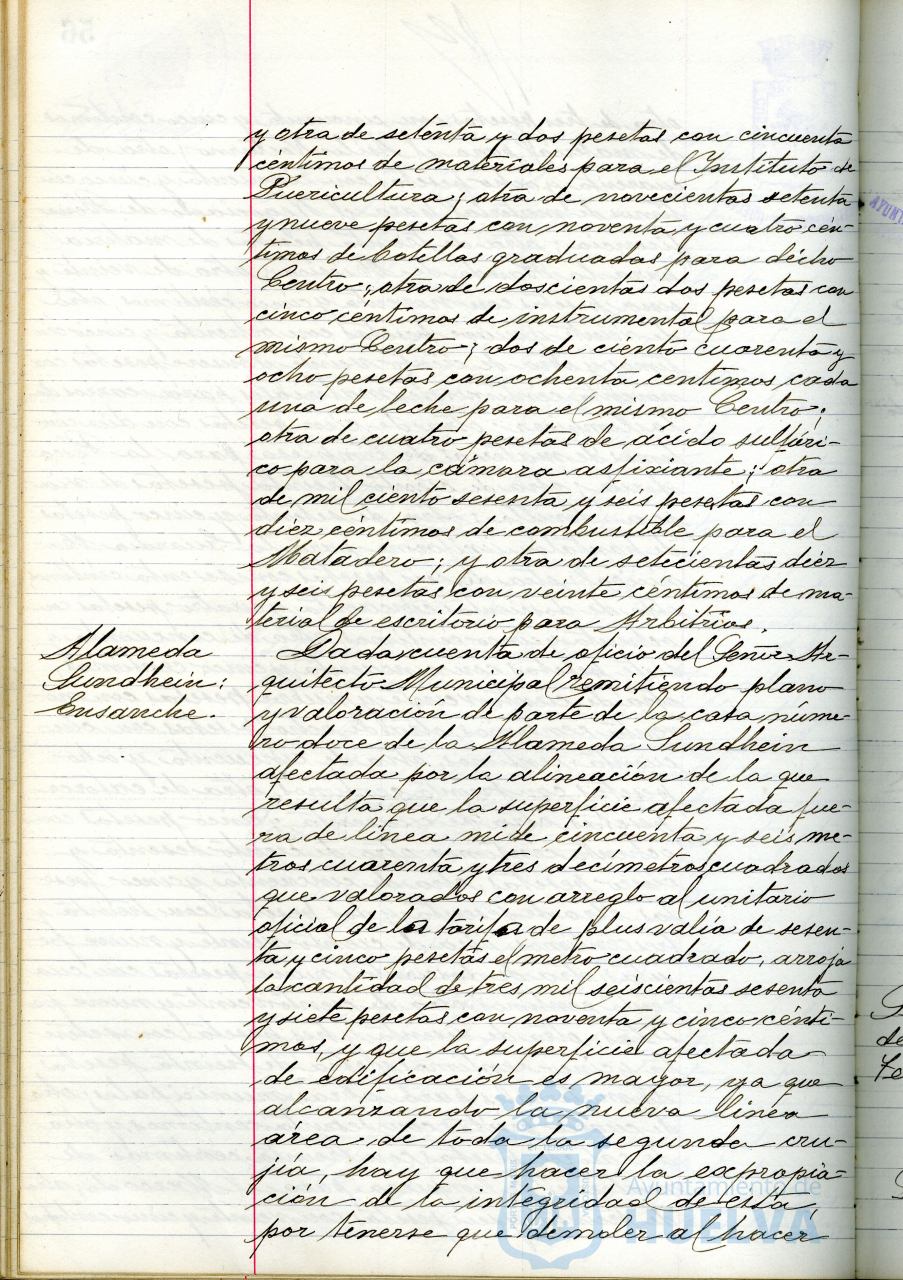 y otra de seténta y dos pesetas con cincuenta
céntimos de materiales para el Instituto de
Puericultura; otra de novecientas setenta
y nueve pesetas con noventa y cuatro cén-
timos de botellas graduadas para dicho
Centro; otra de doscientas dos pesetas con
cinco céntimos de instrumental para el
mismo Centro; dos de ciento cuarenta y
ocho pesetas con ochenta centimos cada
una de leche para el mismo Centro;
otra de cuatro pesetas de ácido sulfúri-
co para la cámara asfixiante; otra
de mil ciento sesenta y seis pesetas con
diez céntimos de combustible para el
Matadero; y otra de setecientas diez
y seis pesetas con veinte céntimos de ma-
terial de escritorio para Arbitrios.
Alameda
Sundhein:
Ensanche.
Dada cuenta de oficio del Señor Ar-
quitecto Municipal remitiendo plano
y valoración de parte de la casa núme-
ro doce de la Alameda Sundhein
afectada por la alineación de la que
resulta que la superficie afectada fue-
ra de línea mide cincuenta y seis me-
tros cuarenta y tres decímetros cuadrados
que valorados con arreglo al unitario
oficial de la tarifa de plus valía de sesen-
ta y cinco pesetas el metro cuadrado, arroja
la cantidad de tres mil seiscientas sesenta
y siete pesetas con noventa y cinco cénti-
mos, y que la superficie afectada
de edificación es mayor, ya que
alcanzando la nueva línea
área de toda la segunda cru-
jía, hay que hacer la expropia-
ción de la integridad de esta,
por tenerse que demoler al hacer
Ayuntamiento de
HUELVA